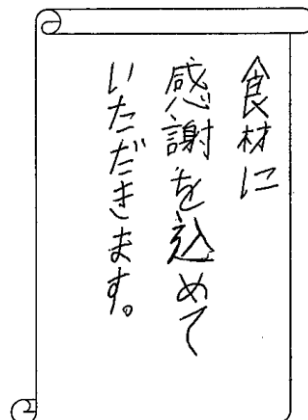 食材に
感謝を込めて
いただきます。